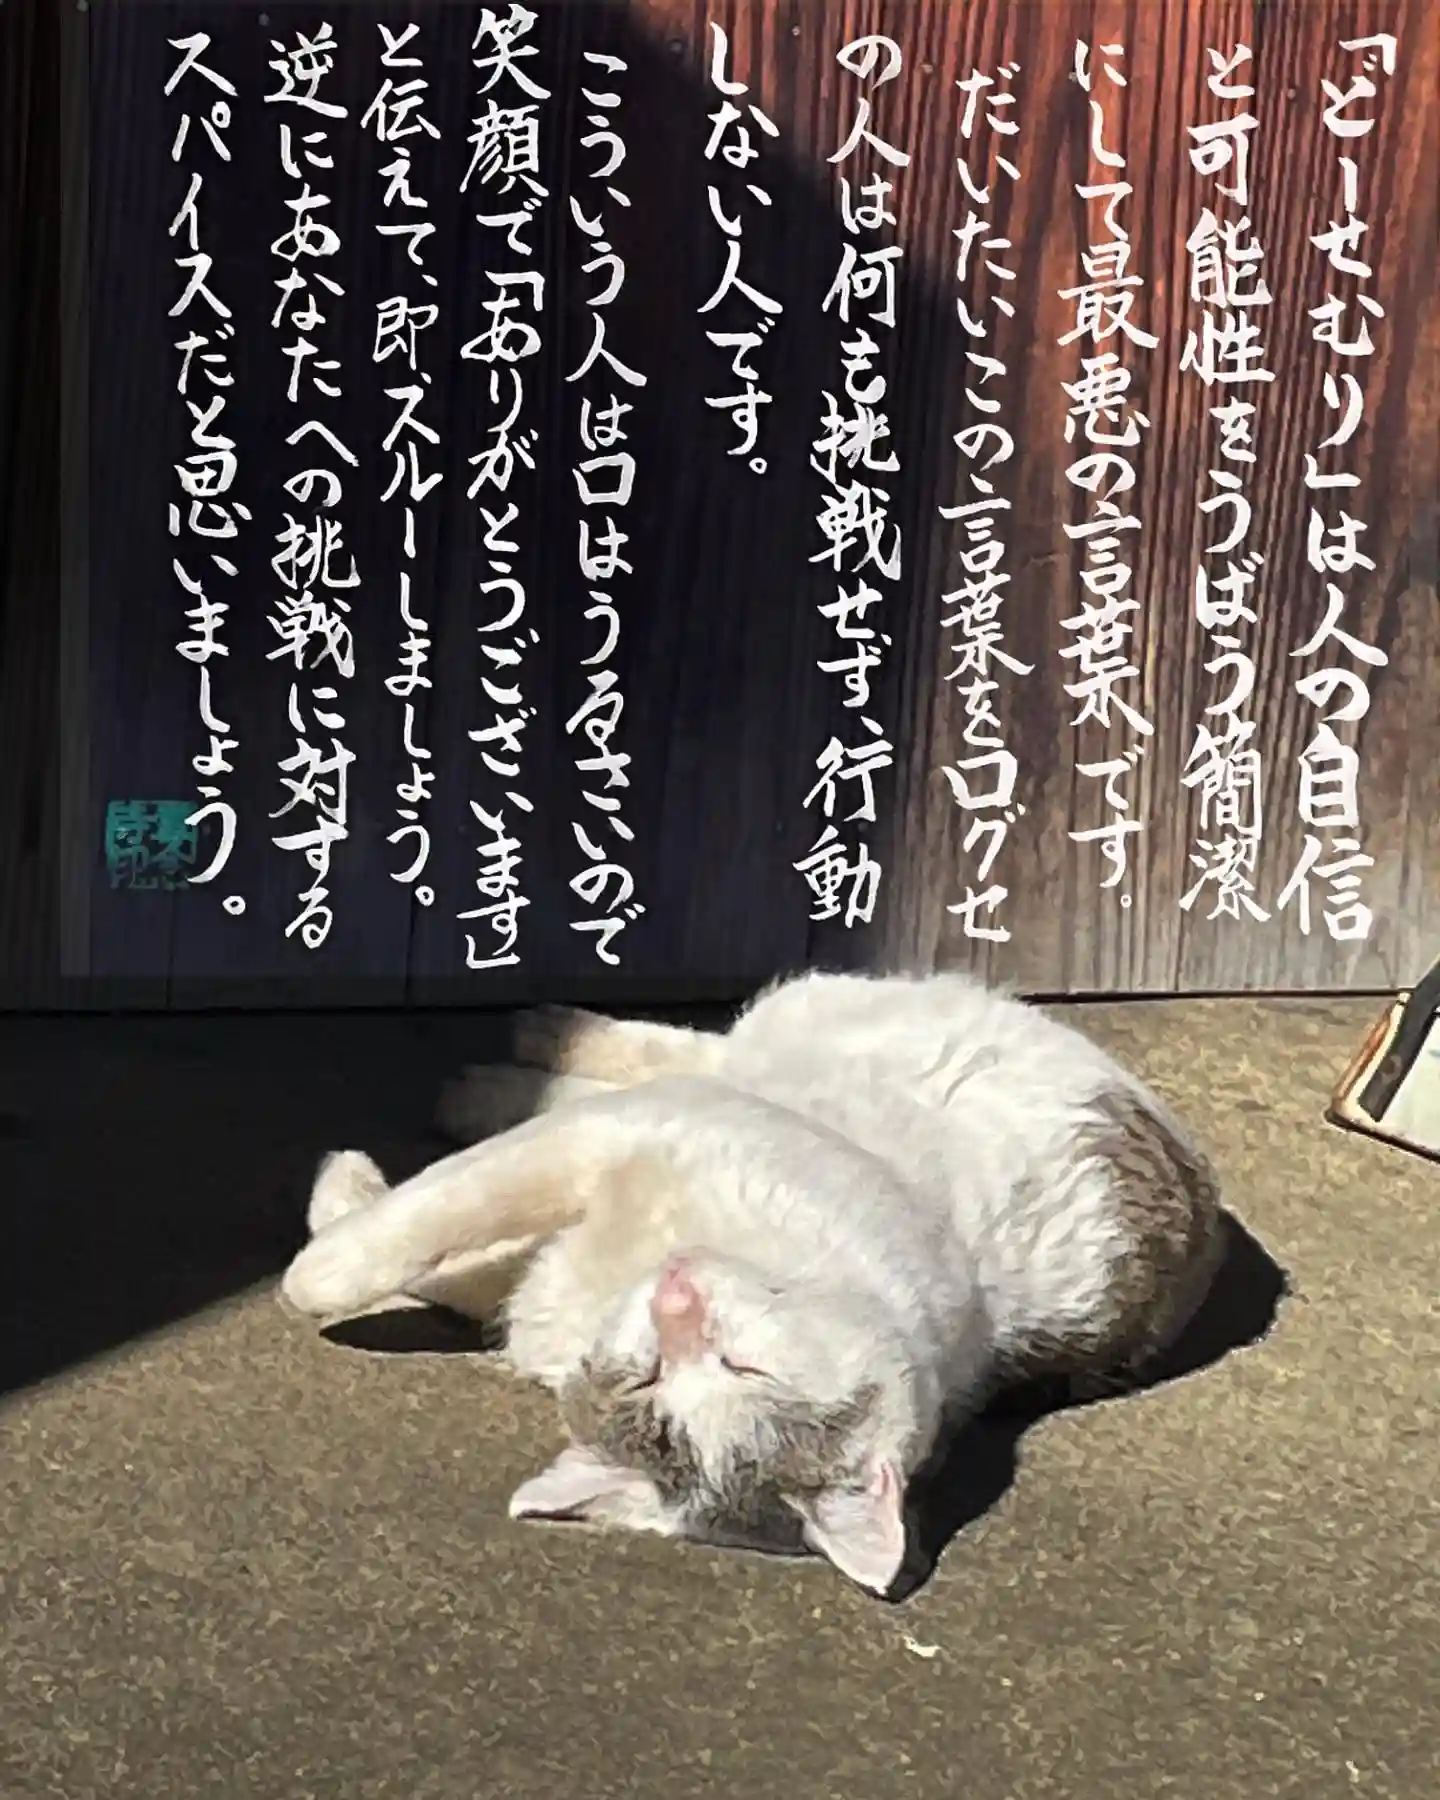 「どーせむり」は人の自信
と可能性をうばう簡潔
にして最悪の言葉です。
だいたいこの言葉を口グセ
の人は何も挑戦せず、行動
しない人です。
こういう人は口はうるさいので
笑顔で「ありがとうございます」
と伝えて、即、スルーしましょう。
逆にあなたへの挑戦に対する
スパイスだと思いましょう。